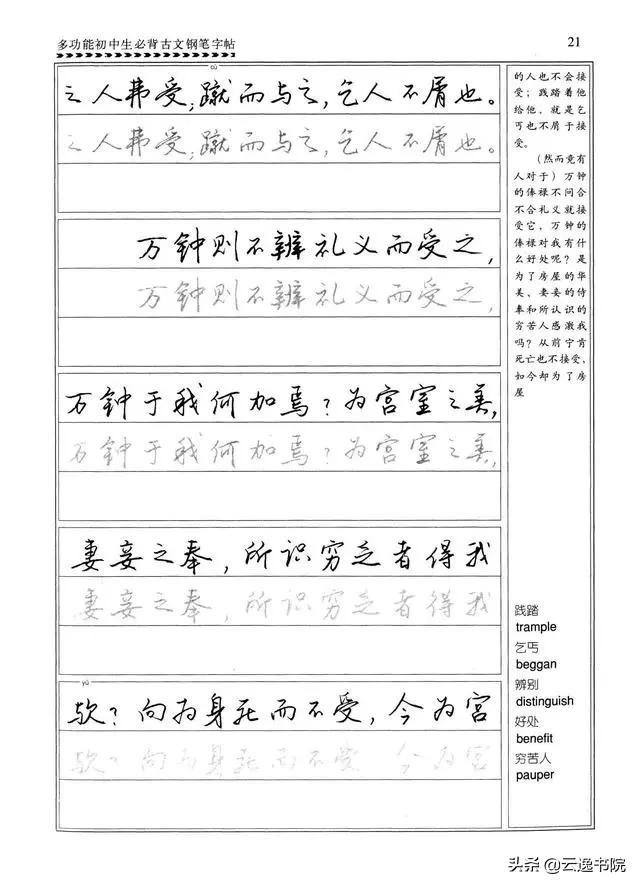 多功能初中生必背古文钢笔字帖
21
之人弗受；蹴而与之，乞人不屑也。
之人弗受；蹴而与之，乞人不屑也。
万钟则不辨礼义而受之，
万钟则不辨礼义而受之，
万钟于我何加焉？为宫室之美，
万钟于我何加焉？为宫室之美，
妻妾之奉，所识穷乏者得我
妻妾之奉，所识穷乏者得我
欤？向为身死而不受，今为宫
欤？向为身死而不受 今为宫
的人也不会接
受；践踏着他
给他，就是乞
丐也不屑于接
受。
（然而竟有
人对于）万钟
的俸禄不问合
不合礼义就接
受它，万钟的
俸禄对我有什
么好处呢？是
为了房屋的华
美、妻妾的侍
奉和所认识的
穷苦人感激我
吗？从前宁肯
死亡也不接受，
如今却为了房
屋
践踏
trample
乞丐
beggan
辨别
distinguish
好处
benefit
穷苦人
pauper
头条@云逸书院